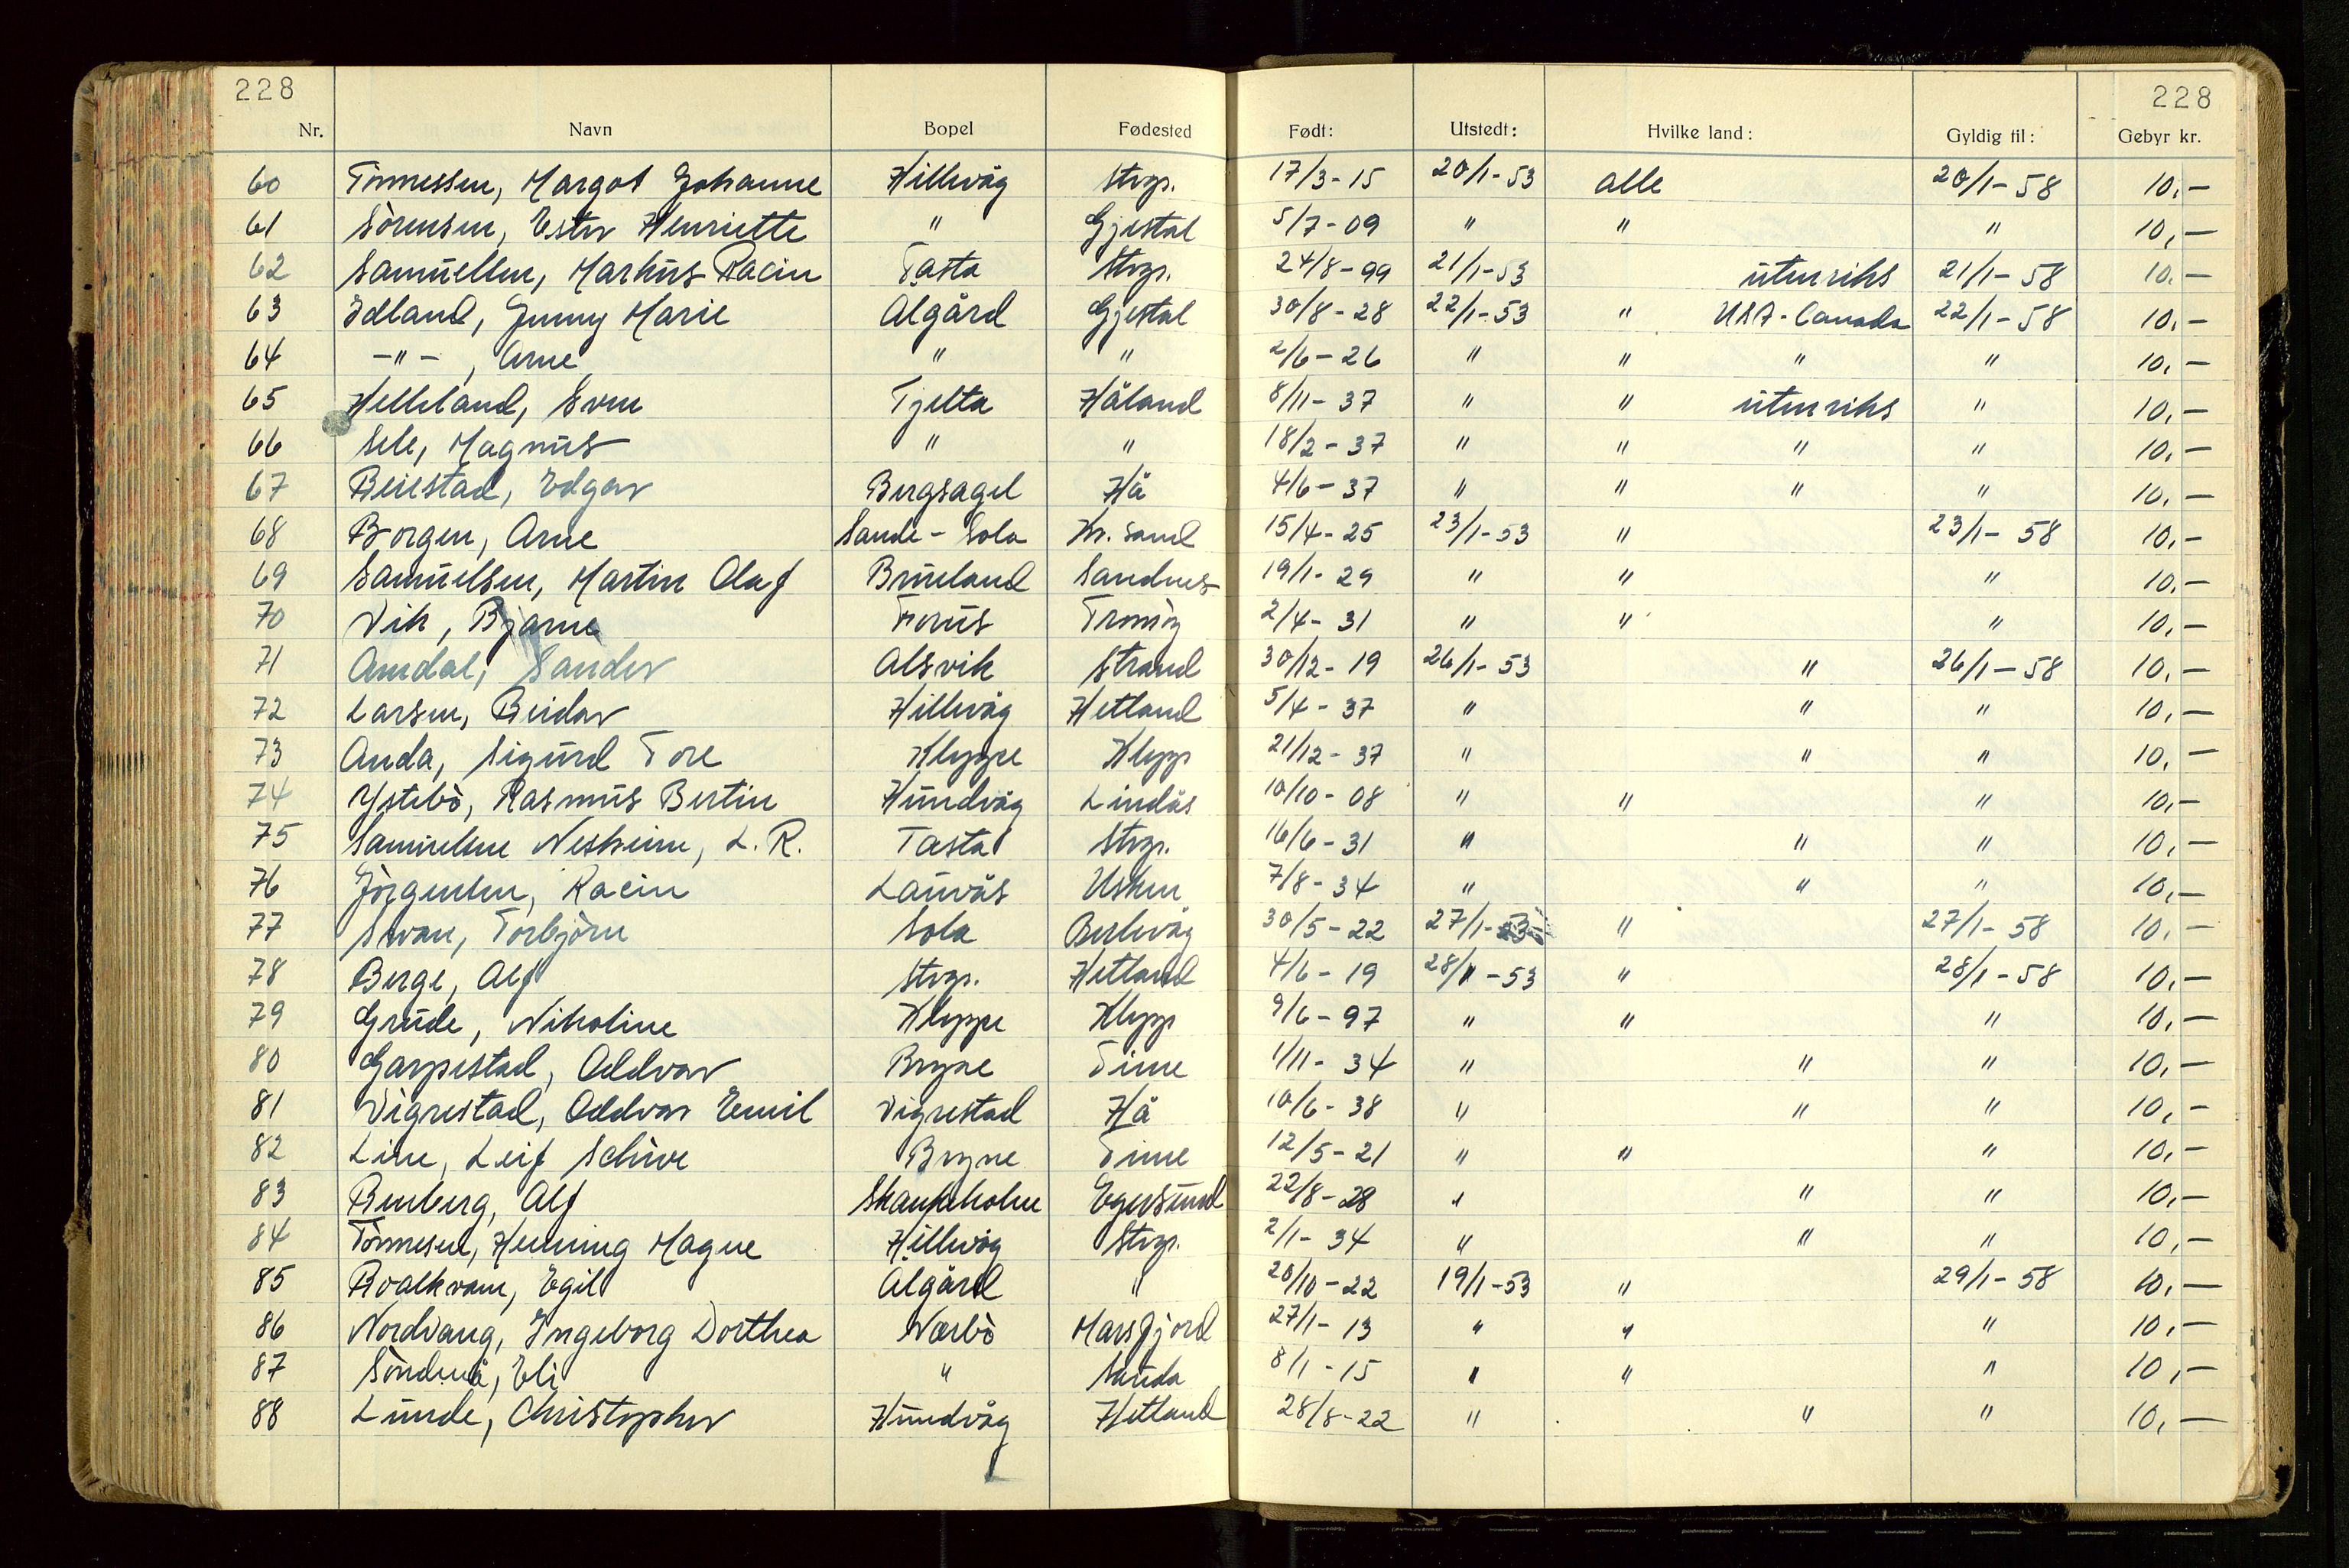 228 228
Nr. Navn Bopel Fødested Født: Utstedt: Hvilke land: Gyldig til: Gebyr kr.
60 Tönnessen, Margot Johanne Hillevåg Stvgr. 17/3-15 20/1-53 alle 20/1-58 10,-
61 Sörensen, Ester Henriette " Gjestal 5/7-09 " " " 10,-
62 Samuelsen, Markus Racin Tasta Stvgr. 24/8-99 21/1-53 utenriks 21/1-58 10.-
63 Edland, Jenny Marie Ålgård Gjestal 30/8-28 22/1-53 " USA-Canada 22/1-58 10,-
64 -"-, Arne " " 2/6-26 " " " " 10,-
65 Helleland, Sven Tjelta Håland 8/11-37 " " utenriks " 10,-
66 Sele, Magnus " " 18/2-37 " " " " 10,-
67 Beiestad, Edgar Bergsagel Hå 4/6-37 " " " " 10,-
68 Borgen, Arne Sande-Sola Kr. Sand 15/4-25 23/1-53 " 23/1-58 10,-
69 Samuelsen, Martin Olaf Brueland Sandnes 19/1-29 " " " 10,-
70 Vik, Bjarne Forus Tromöy 2/4-31 " " " 10,-
71 Amdal, Sander Alsvik Strand 30/12-19 26/1-53 " 26/1-58 10,-
72 Larsen, Reidar Hillevåg Hetland 5/4-37 " " " 10,-
73 Anda, Sigurd Tore Kleppe Klepp 21/12-37 " " " 10,-
74 Ystebö, Rasmus Bertin Hundvåg Lindås 10/10-08 " " " 10,-
75 Samuelsen Nesheim, L. R. Tasta Stvgr. 16/6-31 " " " 10,-
76 Jörgensen, Racin Lauvås Usken 7/8-34 " " " 10,-
77 Svan, Torbjörn Sola Berlevåg 30/5-22 27/1-53 " 27/1-58 10,-
78 Berge, Alf Stvgr. Hetland 4/6-19 28/1-53 " 28/1-58 10,-
79 Grude, Nikoline Kleppe Klepp 9/6-97 " " " 10,-
80 Garpestad, Oddvar Bryne Time 1/11-34 " " " 10,-
81 Vigrestad, Oddvar Emil Vigrestad Hå 10/6-38 " " " 10,-
82 Line, Leif Schive Bryne Time 12/5-21 " " " 10,-
83 Renberg, Alf Skaupeholm Egersund 22/8-28 " " " 10,-
84 Tönnesen, Henning Magne Hillevåg Stvgr. 2/1-34 " " " 10,-
85 Roalkvam, Egil Ålgård " 20/10-22 19/1-53 " 29/1-58 10,-
86 Nordvang, Ingeborg Dorthea Nærbö Marsfjord 27/1-13 " " " 10,-
87 Söndenå, Eli " Sauda 8/1-15 " " " 10,-
88 Lunde, Christopher Hundvåg Hetland 28/8-22 " " " 10,-